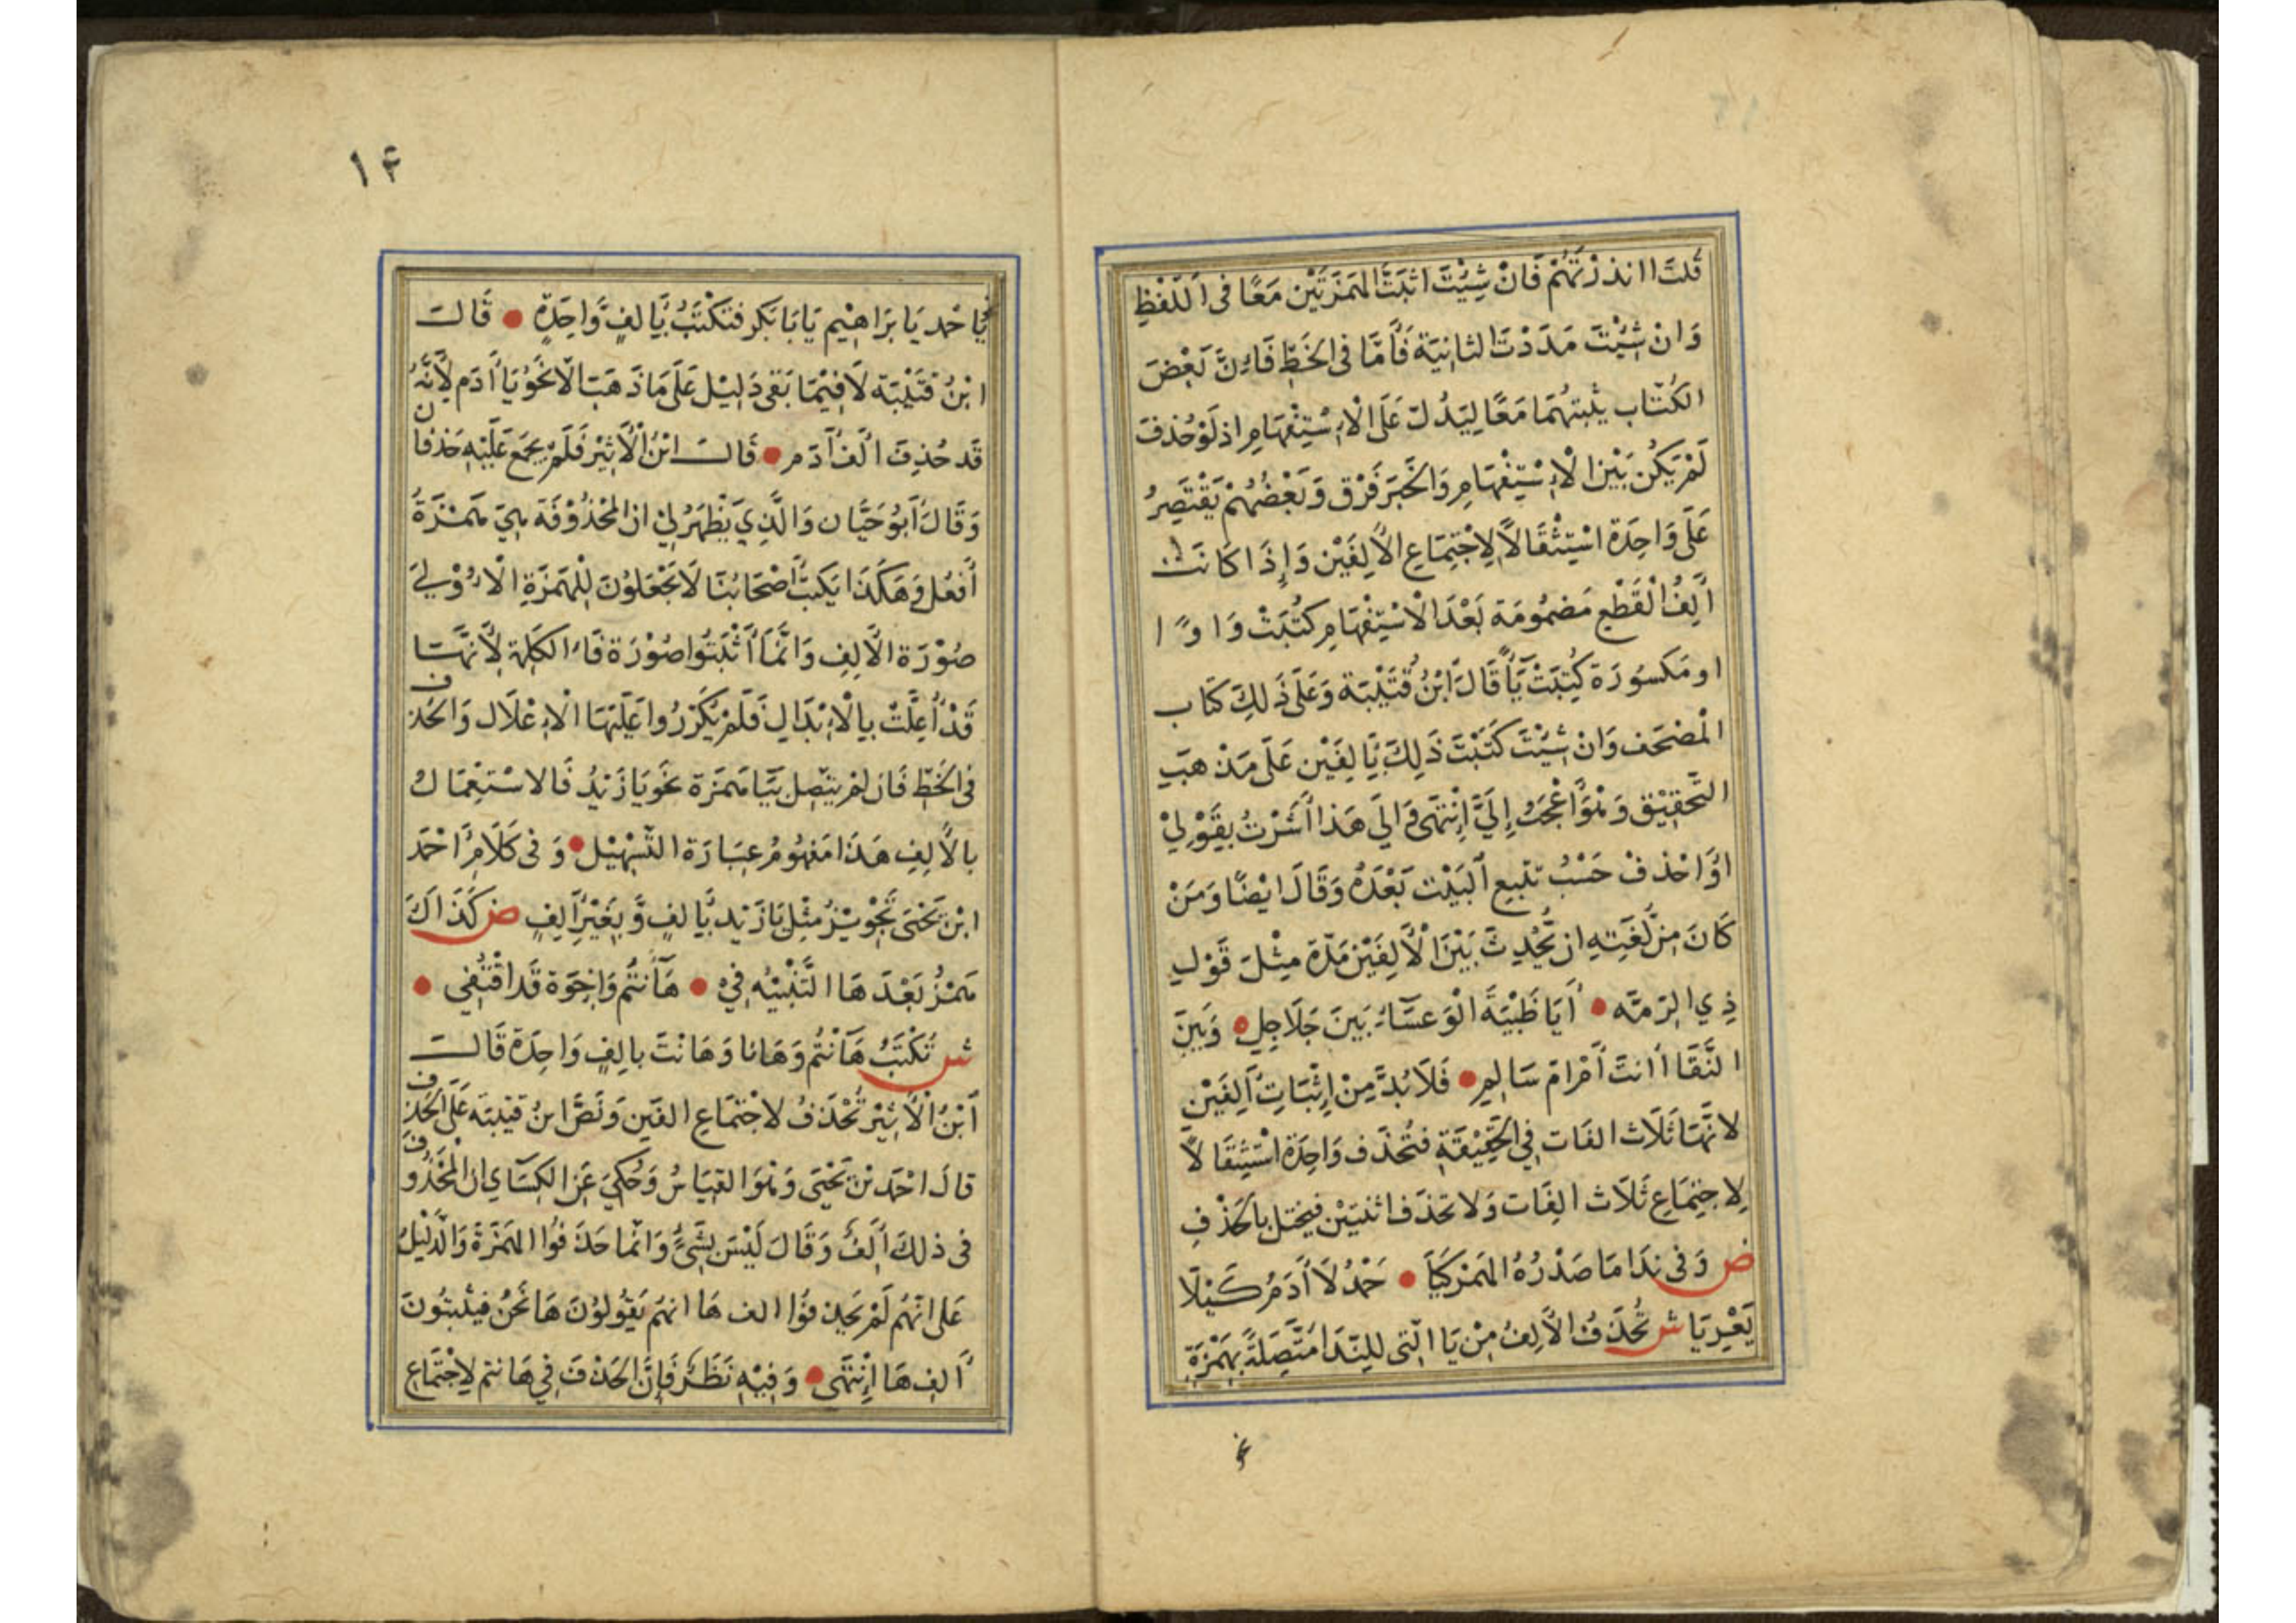 قُلتَ ااندرْتَهُمْ فَانْ شِيْتَ اثبَتَّ الهَمزَتَيْن مَعًا فى اللّفْظِ
وَان شِيْتَ مَدَدْتَ الثانِيَة فَأَمَّا فى الخَطِّ فَاءِنَّ بَعْضَ
الكُتّاب يثبتهُمَا مَعًا ليَدُلّ عَلَى الاِسْتِفْهَامِ اذ لَوْ حُذفَ
لَمْ يَكُن بَيْنَ الاِسْتِفْهَامِ وَالخَبَر فَرْق وَبَعْضُهُمْ يَقْتَصِرُ
عَلَى وَاحِدَة اسْتِثْقَالاً لاِجْتِمَاعِ الأَلِفَيْن وَإِذَا كَانَت
أَلِفُ القَطْعِ مَضمُومَة بَعْدَ الاسْتِفْهَامِ كتُبَتْ وَاوًا
او مَكسُورَة كُتِبَتْ يَأً قَالَ ابْنُ قُتَيْبَة وَعَلَى ذَلِكَ كتَاب
المُصْحَف وَانْ شِيْتَ كَتَبْتَ ذَلِكَ بِأَلِفَيْن عَلَى مَذْهَبِ
التَّحْقِيْق وَهُوَ أَعْجَبُ إِلَيَّ إِنْتَهَى وَالَى هَذا أَشَرْتُ بِقَوْلِيْ
اوَاحْذفْ حَسْبُ تلبع البَيْت بَعْدَهُ وَقَالَ ايْضًا وَمَنْ
كَانَ مِنْ لُغَتِهِ ان يُحْدِثَ بَيْنَ الأَلِفَيْن مَدّة مِثْلَ قَوْلِ
ذِي الرّمَّه ● أَيَا ظَبْيَةَ الوَعسَاءِ بَينَ جَلَاجِلٍ ● وَبَينَ
النَّقَا اأنتَ أَمْ امْ سَالِمِ ● فَلَا بُدَّ مِنْ إِثْبَاتِ أَلِفَيْنِ
لانَّهَا ثَلَاث الفَات فِي الحَقِيْقَةِ فتُحْذَف وَاحِدَة اسْتِثِقَالاً
لاِجتِمَاعِ ثَلَاث الفَات وَلا تحذَف اثنيَيْن فيختل بالحَذْفِ
ض وَفى نِدَا مَا صَدْرُهُ الهَمزُ كَيَا ● حَمْدُ لَا أَدَمُ كَيْلَا
يَعْرِيَا ش تُحْذَفُ الأَلِفُ مِنْ يَا الّتى للنِدَا مُتَّصِلَةً بِهَمْزَةٍ
١٤
يَاحْمد يَابرَاهِيْم يَابَا بَكر فتَكْتَبُ بِأَلفٍ وَاحِدَةٍ ● قَالَ
ابْنُ قتَيْبَة لَا فِيْمَا بَقى دَلِيْل عَلَى مَا ذَهَبَ الّا نَحْوُ يَا أدَم لأَنَّهُ
قَد حُذِفَ الَف أدَم ● قَالَ ابْنُ الأَثِيْر فَلَمْ يجمَع عَلَيْهِ حَذفَان
وَقَالَ أبُو حَيَّان وَالَّذِي يَظْهَرُ لِيْ ان المحْذُوْفَة هِيَ هَمْزَةُ
أَفعُل وَهَكَذَا يَكتبُ أَصْحَابُنَا لَا يَجْعَلوْنَ لِلْهَمْزَةِ الاُوْلىَ
صُوْرَة الأَلِفِ وَانَّمَا أَثْبَتُوا صُوْرَة فَاءِ الكَلِمَة لأَنَّهَا
قَدْ أُعِلَّتْ بِالاِبْدَالِ فَلَمْ يُكَرّرُوا عَلَيْهَا الاِعْلَال وَالحَذف
فى الخَطِّ فَان لمْ يتّصِل بيَا هَمزَة نحَو يَا زَيْدُ فَالاسْتِعْمَالُ
بالأَلِفِ هَذَا مَفهُومُ عِبَارَة التّسْهِيْل ● وَفى كَلَامِ أَحْمَد
ابْن يَحْيَى تَجْوِيْزُ مثْلِ يَا زَيْد بِأَلفٍ وَّبِغَيْرِ أَلِفٍ ض كَذَاكَ
هَمْزُ بَعْدَ هَا التَّنْبِيْه فِيْ ● هَأَنتُم وَاِخوَة قَد اقْتُفِى ●
ش تُكْتَبُ هَأَنْتُم وَهَانا وَهَانْتَ بالِفٍ وَاحِدَة قَالَ
ابْنُ الأَثِيْر تُحْذَفُ لاجْتِمَاعِ الفَين وَنَصَّ ابنُ قتيبَة عَلَى الحَذف
قالَ احْمَد بْن يَحْيَى وَهُوَ القيَاسُ وَحُكِيَ عَن الكسَاي ان المَحْذُوف
فى ذلكَ أَلِفُ وَقَالَ لَيْسَ بِشَىءٍ وَانّما حَذَفُوا الهَمْزَة وَالدَّلْيلُ
عَلى انّهُم لَمْ يَحذفُوا الف هَا انهُم يَقُولوُنَ هَا نَحْنُ فيُثبتُونَ
أَلِف هَا اِنْتَهَى ● وَفِيْهِ نَظَرٌ فَإِنَّ الحَذْفَ فِي هَانتم لِاجْتِمَاعِ